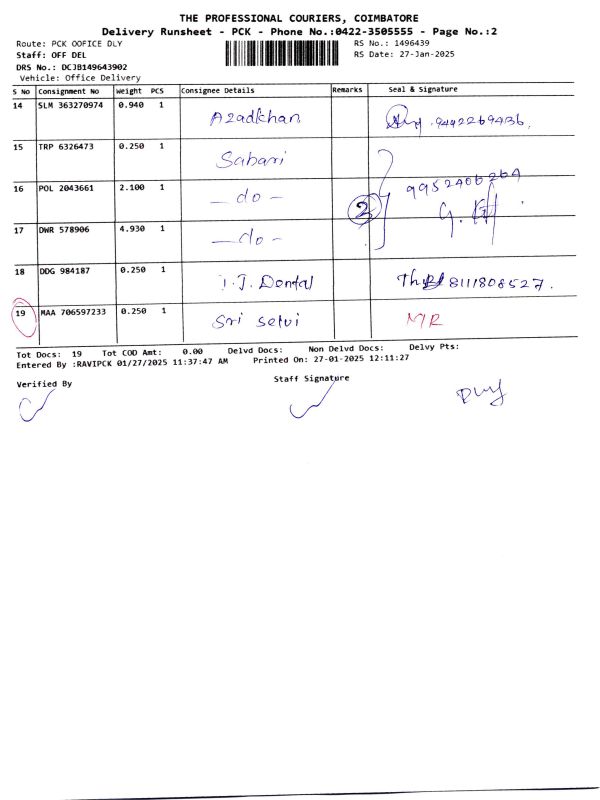 THE PROFESSIONAL COURIERS, COIMBATORE
Delivery Runsheet - PCK - Phone No.:0422-3505555 - Page No.:2
Route: PCK OOFICE DLY RS No.: 1496439
Staff: OFF DEL RS Date: 27-Jan-2025
DRS No.: DCJB149643902
Vehicle: Office Delivery
S No Consignment No Weight PCS Consignee Details Remarks Seal & Signature
14 SLM 363270974 0.940 1 Azadkhan 9442269436
15 TRP 6326473 0.250 1 Sabari
16 POL 2043661 2.100 1 - do - 2 9952406264
17 DWR 578906 4.930 1 - do -
18 DDG 984187 0.250 1 I.J. Dental 8111808527.
19 MAA 706597233 0.250 1 Sri selvi NR
Tot Docs: 19 Tot COD Amt: 0.00 Delvd Docs: Non Delvd Docs: Delvy Pts:
Entered By :RAVIPCK 01/27/2025 11:37:47 AM Printed On: 27-01-2025 12:11:27
Verified By Staff Signature